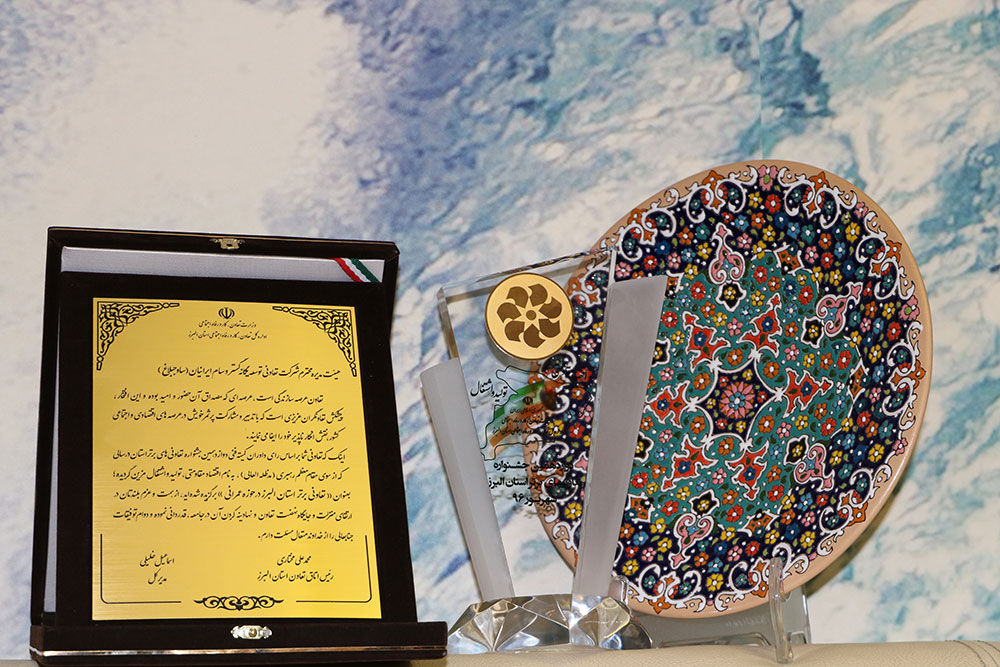 وزارت تعاون، کار و رفاه اجتماعی
اداره کل تعاون، کار و رفاه اجتماعی استان البرز
هیئت مدیره محترم شرکت تعاونی توسعه یگانه گستر وسام ایرانیان (ساوجبلاغ)
تعاون عرصه سازندگی است، عرصه‌ای که مصداق آن حضور و امید بوده و این افتخار،
پیشکش تعاونگران عزیزی است که با تدبیر و مشارکت پرثمر خویش در عرصه های اقتصادی و اجتماعی
کشور نقش انکار ناپذیر خود را ایفا می نمایند.
اینک که تعاونی شما بر اساس رای داوران کمیته فنی دوازدهمین جشنواره تعاونی های برتر استان در سالی
که از سوی مقام معظم رهبری (مدظله العالی)، به نام اقتصاد مقاومتی، تولید و اشتغال مزین گردیده؛
بعنوان «تعاونی برتر استان البرز در حوزه عمرانی» برگزیده شده اید، از همت و عزم بلندتان در
ارتقای منزلت و جایگاه نهضت تعاون و نهادینه کردن آن در جامعه، قدردانی نموده و دوام توفیقات
جنابعالی را از خداوند متعال مسئلت دارم.
محمد علی مختاری
رئیس اتاق تعاون استان البرز
اسماعیل خلیلی
مدیر کل
تولید و اشتغال
جشنواره
برتر استان البرز
۹۶